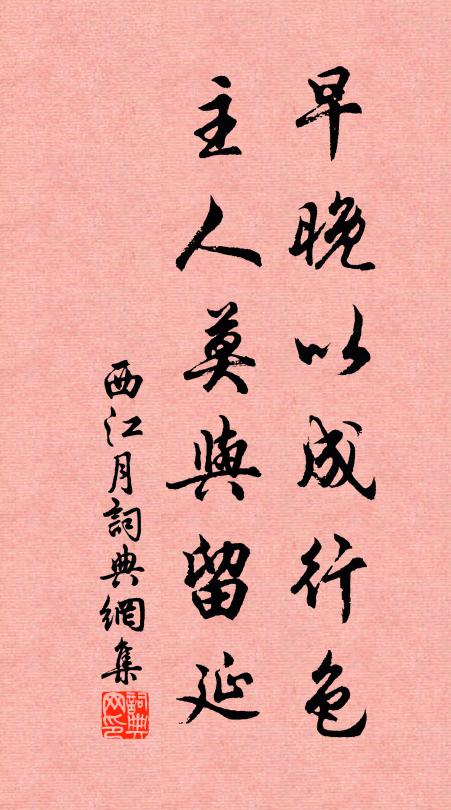 早晚以成行色
主人莫與留延
西江月詞典網集
詞典網印